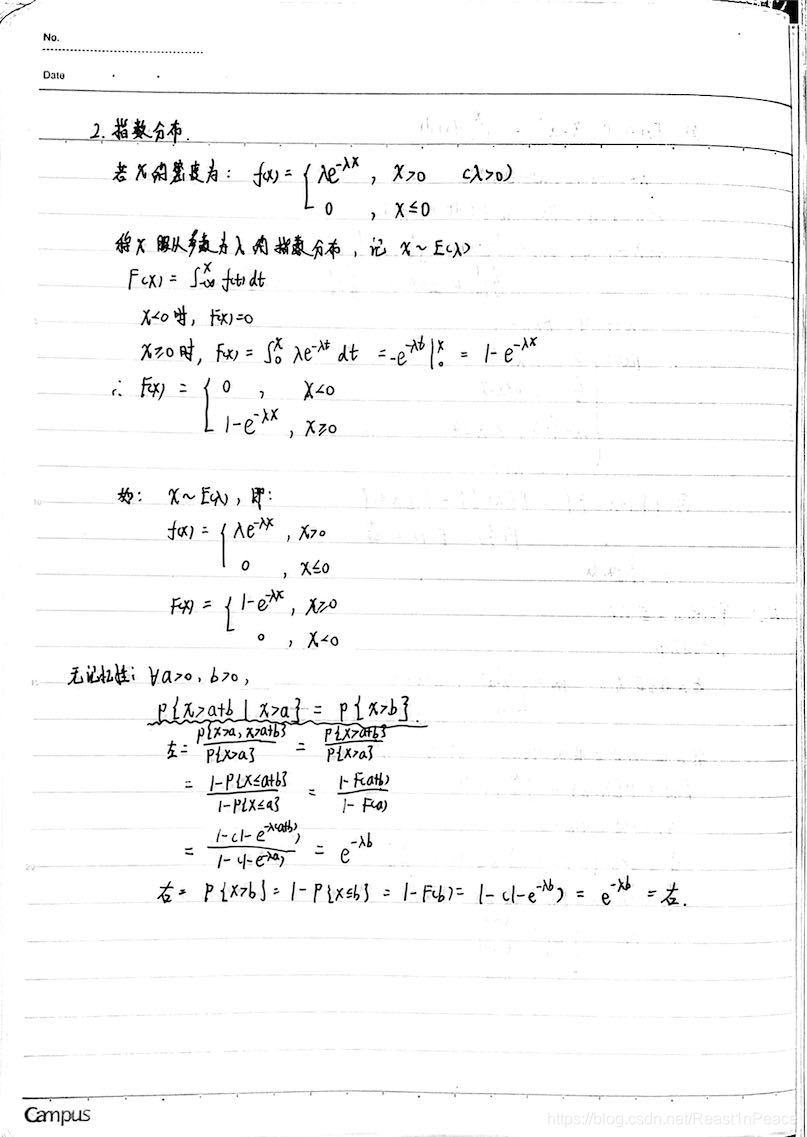 No.
Date
2. 指数分布.
若 X 的密度为: f(x) = { λe^{-λx} , x>0 (λ>0)
0 , x≤0
称 X 服从参数为 λ 的指数分布, 记 X ~ E(λ)
F(x) = ∫_{-∞}^{x} f(t)dt
x<0 时, F(x)=0
x≥0 时, F(x) = ∫_0^x λe^{-λt} dt = -e^{-λt} |_0^x = 1-e^{-λx}
∴ F(x) = { 0 , x<0
1-e^{-λx} , x≥0
X ~ E(λ), 即:
f(x) = { λe^{-λx} , x>0
0 , x≤0
F(x) = { 1-e^{-λx} , x≥0
0 , x<0
无记忆性: ∀a>0, b>0,
P{X>a+b | X>a} = P{X>b}.
左 = P{X>a, X>a+b} / P{X>a} = P{X>a+b} / P{X>a}
= 1-P{X≤a+b} / 1-P{X≤a} = 1-F(a+b) / 1-F(a)
= 1-(1-e^{-λ(a+b)}) / 1-(1-e^{-λa}) = e^{-λb}
右 = P{X>b} = 1-P{X≤b} = 1-F(b) = 1-(1-e^{-λb}) = e^{-λb} = 左.
Campus
https://blog.csdn.net/Reast1nPeace